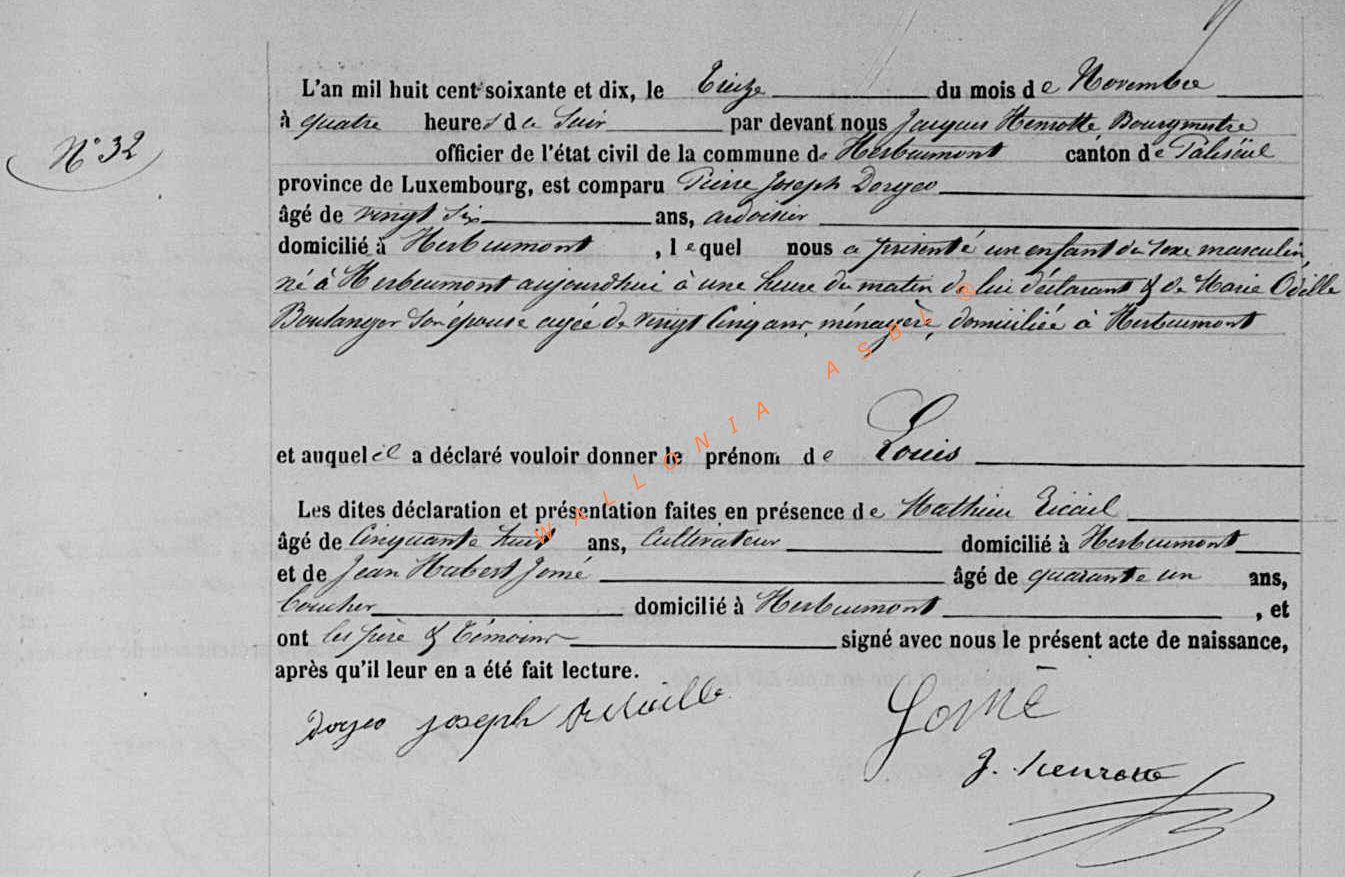 N° 32
L'an mil huit cent soixante et dix, le Treize du mois de Novembre
à quatre heures du Soir par devant nous Jacques Henrotte Bourgmestre
officier de l'état civil de la commune de Herbeumont canton de Paliseul
province de Luxembourg, est comparu Pierre Joseph Dorgeo
âgé de vingt six ans, ardoisier
domicilié à Herbeumont, lequel nous a présenté un enfant du sexe masculin
né à Herbeumont aujourd'hui à une heure du matin de lui déclarant & de Marie Odille
Boulanger son épouse agée de vingt cinq ans, ménagère, domiciliée à Herbeumont
et auquel il a déclaré vouloir donner le prénom de Louis
Les dites déclaration et présentation faites en présence de Mathieu
âgé de Cinquante huit ans, Cultivateur domicilié à Herbeumont
et de Jean Hubert Jomé âgé de quarante un ans,
domicilié à Herbeumont, et
ont les père & témoins signé avec nous le présent acte de naissance,
après qu'il leur en a été fait lecture.
Dorgeo joseph
Jomé
J. Henrotte
WALLONIA ASBL ®